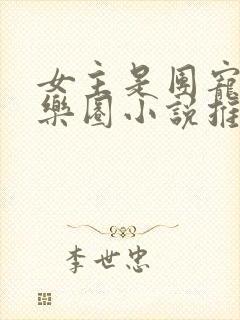 女主是團寵
樂園小說推
李世忠